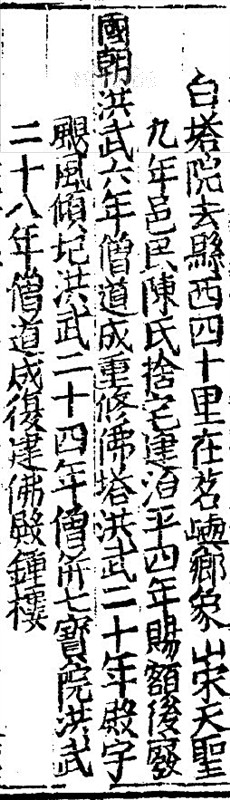 白塔院去縣西四十里在茗嶼鄉象山宋天聖
九年邑民陳氏捨宅建治平四年賜額後廢
國朝洪武六年僧道成重修佛塔洪武二十年殿宇
颶風傾圮洪武二十四年僧併七寳院洪武
二十八年僧道成復建佛殿鍾樓